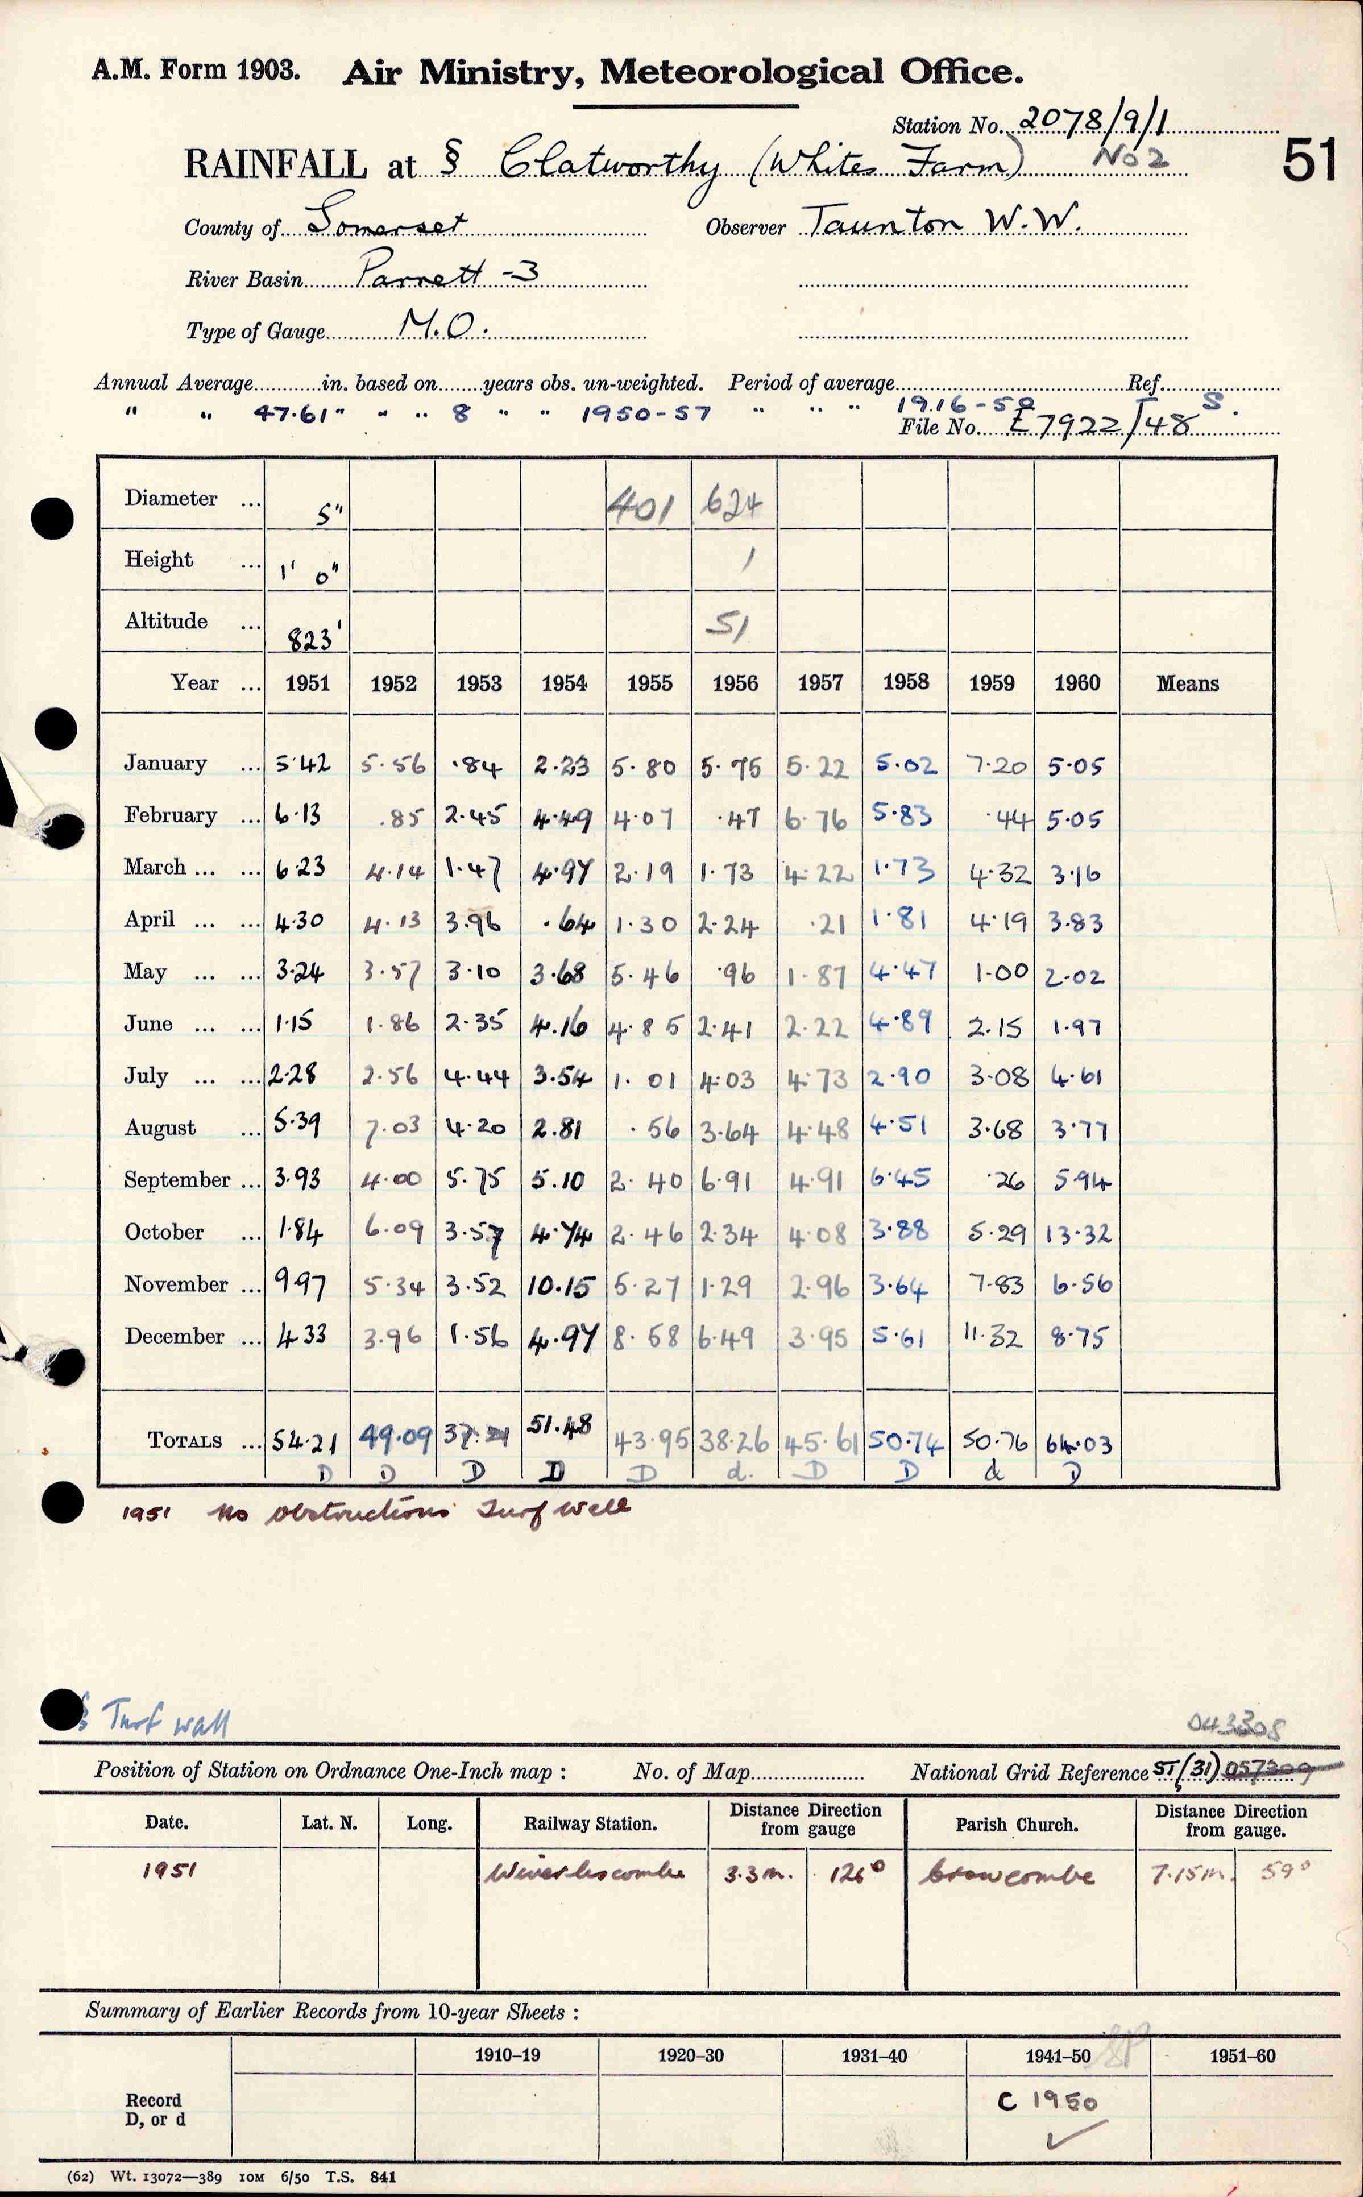 A.M. Form 1903. Air Ministry, Meteorological Office.
Station No. 2078/9/1
RAINFALL at § Clatworthy (Whites Farm) No 2 51
County of Somerset Observer Taunton W.W.
River Basin Parrett -3
Type of Gauge M.O.
Annual Average in. based on years obs. un-weighted. Period of average Ref.
" " 47.61" " " 8 " " 1950-57 " " " 1916-50 S.
File No. E7922/T48
Diameter ... 5" 401 624
Height ... 1' 0" 1
Altitude ... 823' 51
Year ... 1951 1952 1953 1954 1955 1956 1957 1958 1959 1960 Means
January ... 5.42 5.56 .84 2.23 5.80 5.75 5.22 5.02 7.20 5.05
February ... 6.13 .85 2.45 4.49 4.07 .47 6.76 5.83 .44 5.05
March ... ... 6.23 4.14 1.47 4.97 2.19 1.73 4.22 1.73 4.32 3.16
April ... ... 4.30 4.13 3.96 .64 1.30 2.24 .21 1.81 4.19 3.83
May ... ... 3.24 3.57 3.10 3.68 5.46 .96 1.87 4.47 1.00 2.02
June ... ... 1.15 1.86 2.35 4.16 4.85 2.41 2.22 4.89 2.15 1.97
July ... ... 2.28 2.56 4.44 3.54 1.01 4.03 4.73 2.90 3.08 4.61
August ... 5.39 7.03 4.20 2.81 .56 3.64 4.48 4.51 3.68 3.77
September ... 3.93 4.00 5.75 5.10 2.40 6.91 4.91 6.45 .26 5.94
October ... 1.84 6.09 3.57 4.74 2.46 2.34 4.08 3.88 5.29 13.32
November ... 9.97 5.34 3.52 10.15 5.27 1.29 2.96 3.64 7.83 6.56
December ... 4.33 3.96 1.56 4.97 8.58 6.49 3.95 5.61 11.32 8.75
TOTALS ... 54.21 49.09 37.21 51.48 43.95 38.26 45.61 50.74 50.76 64.03
D D D D D d. D D d D
1951 No obstructions Turf wall
§ Turf wall 043308
Position of Station on Ordnance One-Inch map : No. of Map National Grid Reference ST(31) 057309
Date. Lat. N. Long. Railway Station. Distance Direction from gauge Parish Church. Distance Direction from gauge.
1951 Wiveliscombe 3.3m. 126° Crowcombe 7.15m. 59°
Summary of Earlier Records from 10-year Sheets :
1910–19 1920–30 1931–40 1941–50 1951–60
Record
D, or d
C 1950
(62) Wt. 13072—389 10M 6/50 T.S. 841